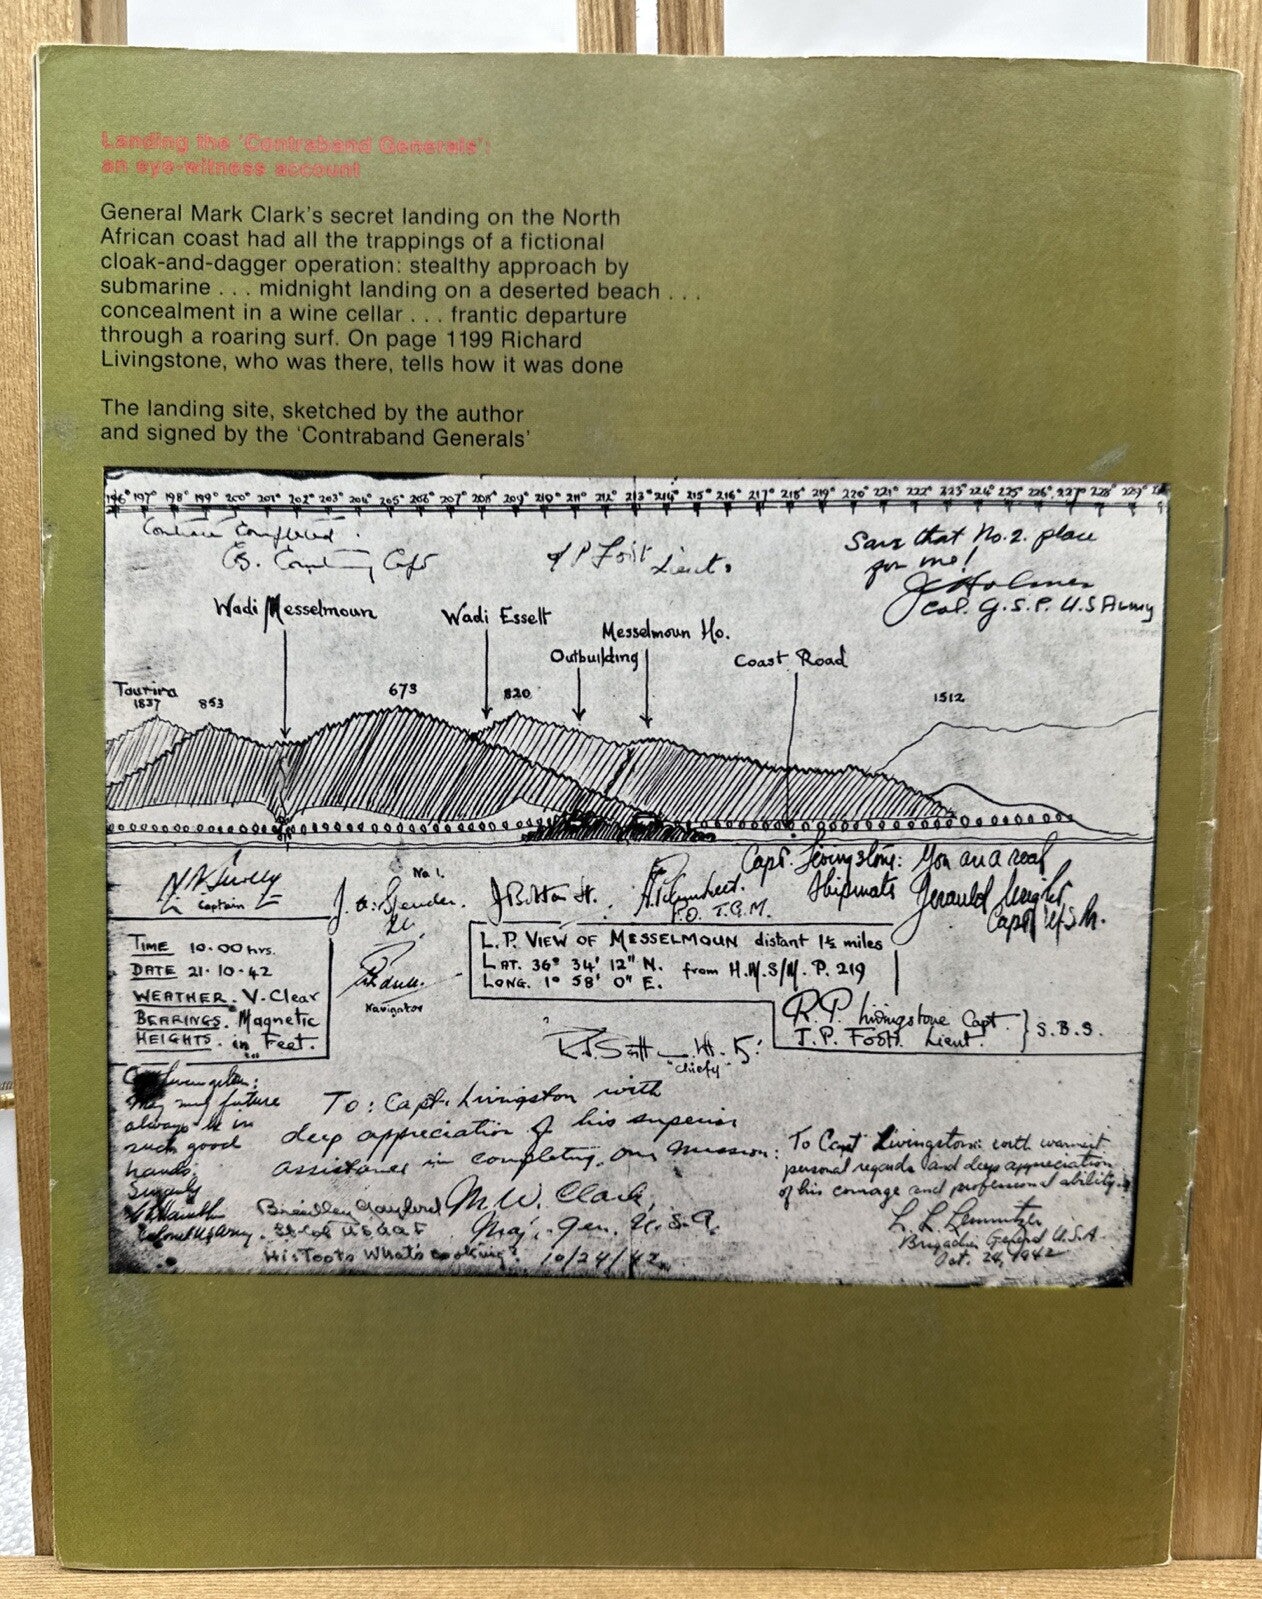 Landing the 'Contraband Generals':
an eye-witness account
General Mark Clark's secret landing on the North
African coast had all the trappings of a fictional
cloak-and-dagger operation: stealthy approach by
submarine . . . midnight landing on a deserted beach . . .
concealment in a wine cellar . . . frantic departure
through a roaring surf. On page 1199 Richard
Livingstone, who was there, tells how it was done
The landing site, sketched by the author
and signed by the 'Contraband Generals'
196° 197° 198° 199° 200° 201° 202° 203° 204° 205° 206° 207° 208° 209° 210° 211° 212° 213° 214° 215° 216° 217° 218° 219° 220° 221° 222° 223° 224° 225° 226° 227° 228° 229°
Completed.
Lieut.
Save that No. 2. place
for me!
JCHolmes
Col. G.S.P. U.S Army
Wadi Messelmoun
Wadi Esselt
Messelmoun Ho.
Outbuilding
Coast Road
Tourira
1837
853
673
820
1512
Captain
No 1.
P.O. T.G.M.
Capt. Livingstone: You are a real
Shipmate Jerauld Wright
Capt U.S.N.
TIME 10.00 hrs.
DATE 21.10.42
WEATHER. V. Clear
BEARINGS. Magnetic
HEIGHTS. in Feet.
Navigator
L.P. VIEW OF MESSELMOUN distant 1½ miles
LAT. 36° 34' 12" N. from H.M.S/M. P. 219
LONG. 1° 58' 0" E.
R.P. Livingstone Capt.
J.P. Foot. Lieut. } S.B.S.
"Chiefy"
May my future
always be in
such good
hands.
Colonel US Army.
To: Capt. Livingston with
deep appreciation of his superior
assistance in completing our mission:
M.W. Clark,
Maj. Gen. U.S.A.
10/24/42
What's cooking?
To Capt Livingstone: with warmest
personal regards and deep appreciation
of his courage and professional ability.
L. L. Lemnitzer
Brigadier General U.S.A
Oct. 24, 1942